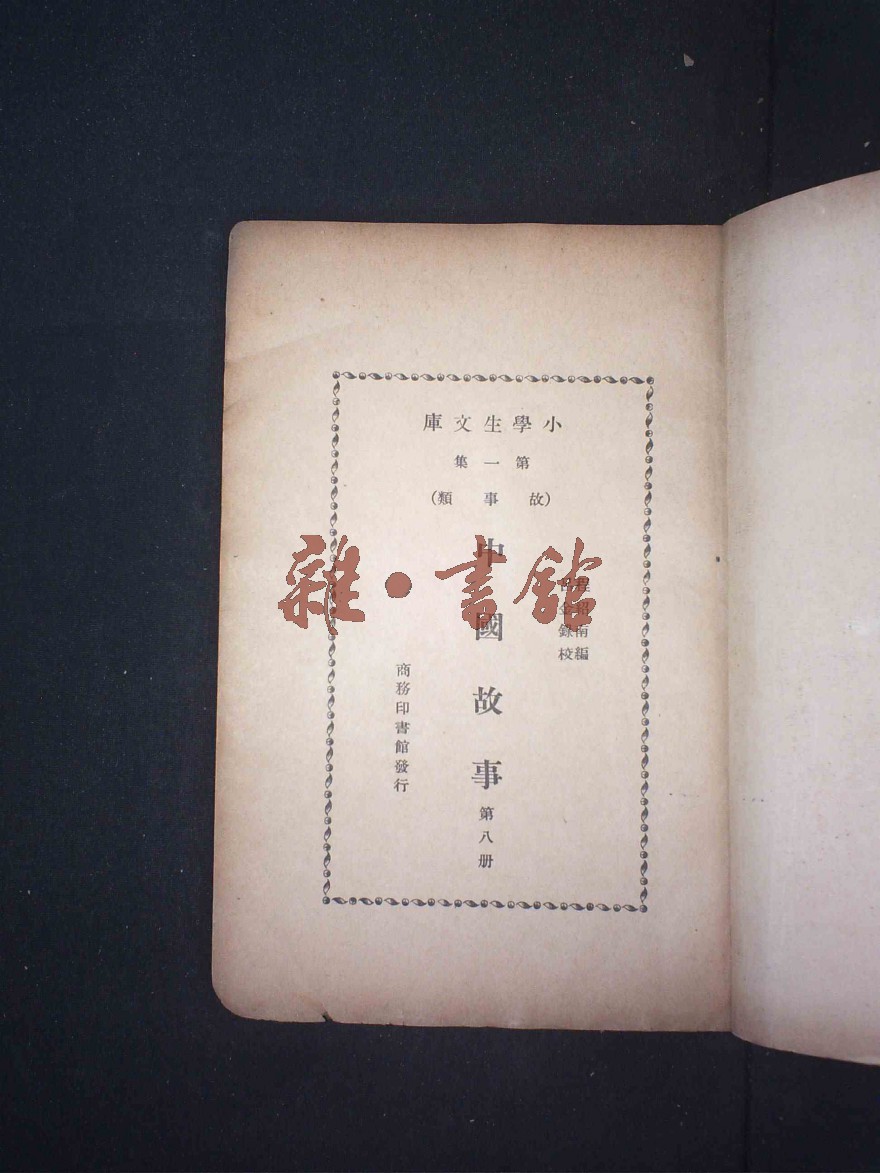 小學生文庫
第一集
(故事類)
程紹南編
呂金錄校
中國故事
第八册
商務印書館發行
雜·書館